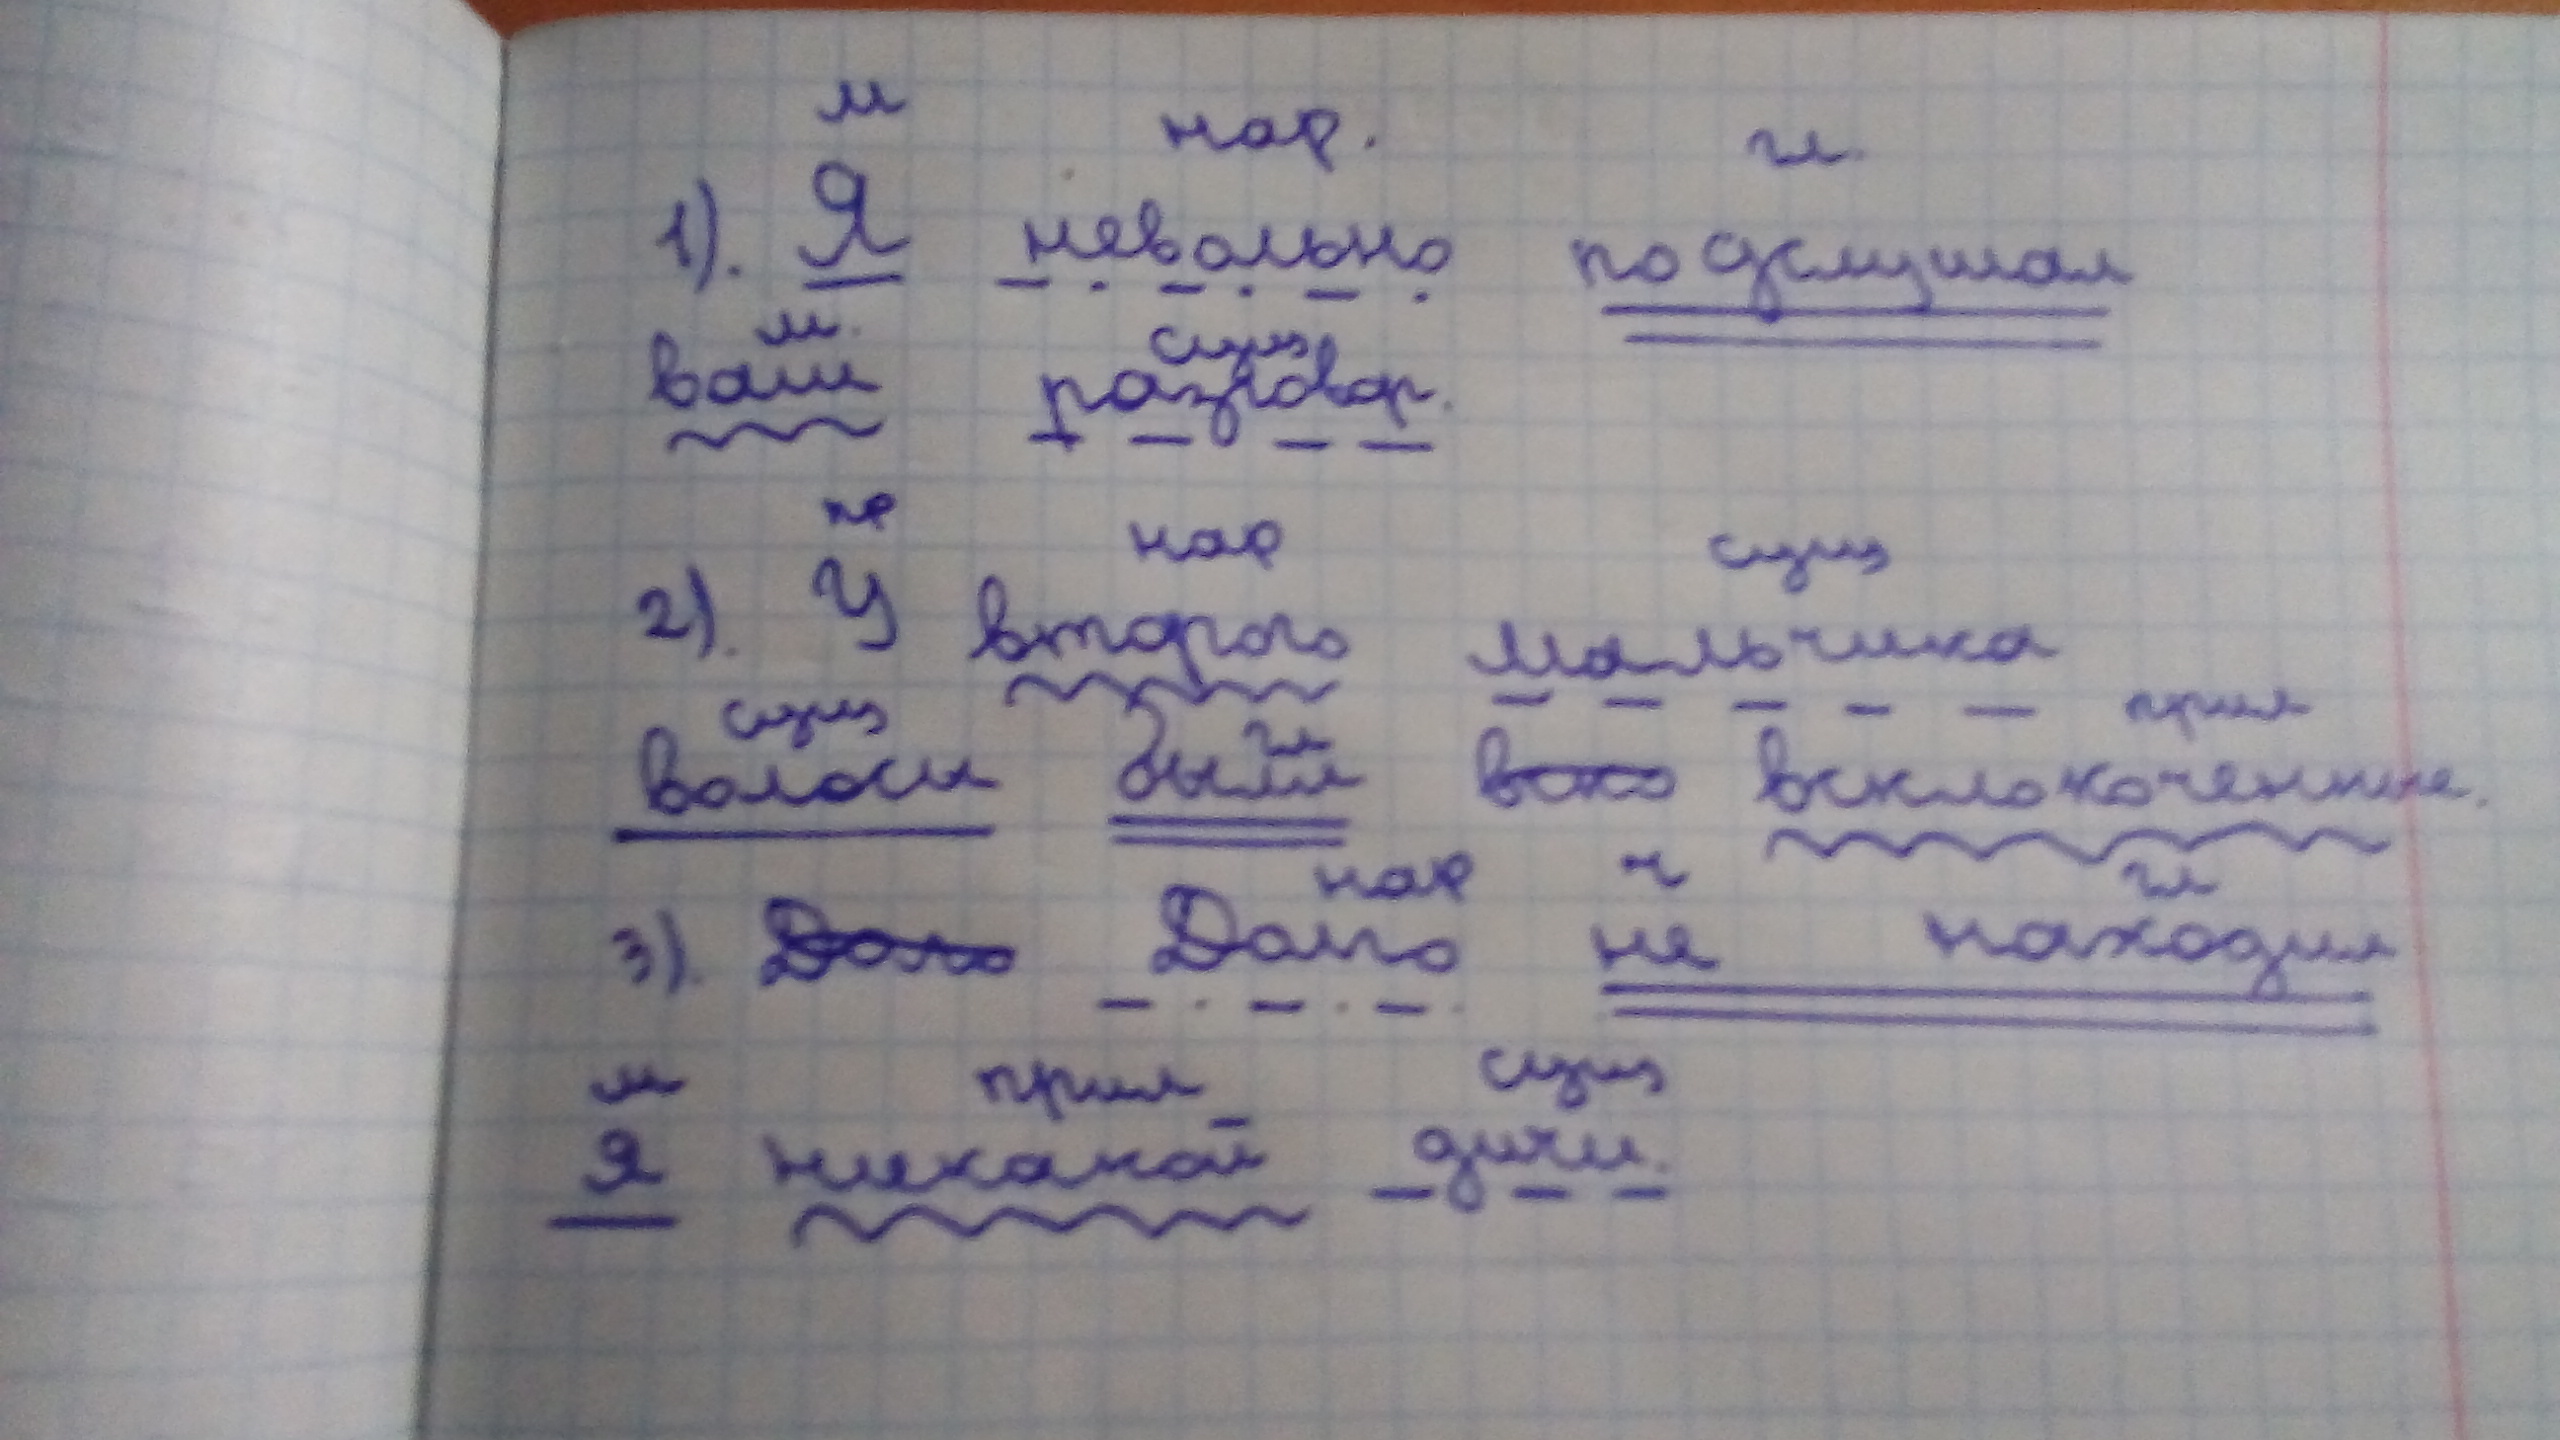 м нар. гл.
1). Я невольно подслушал
м. сущ
ваш разговор.
пр нар сущ
2). У второго мальчика
сущ гл прил
волосы были вско всклокоченные.
нар ч гл
3). Долго не находил
м прил сущ
я никакой дичи.